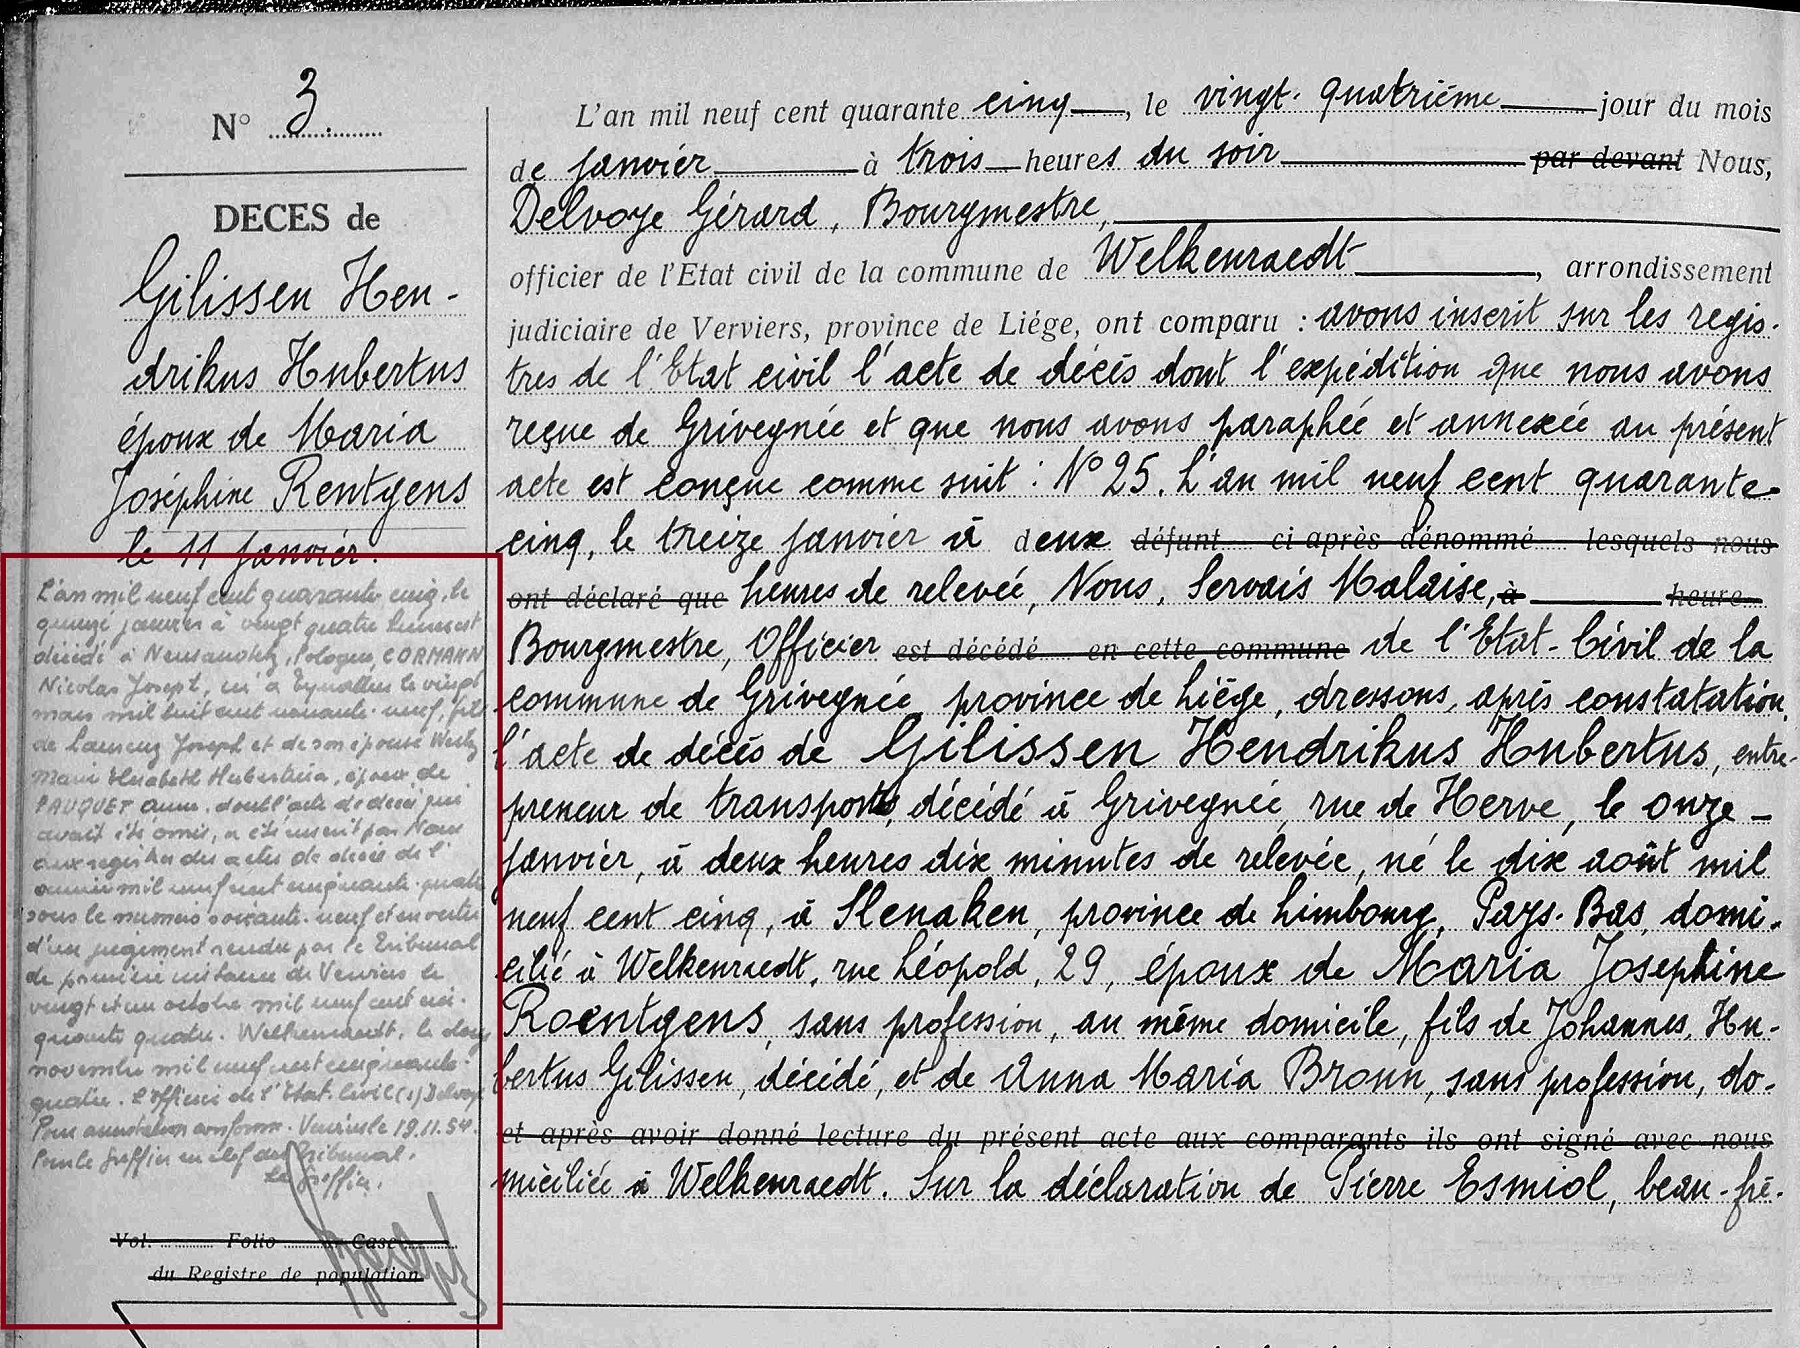 N° 3.
DECES de
Gilissen Hen-
drikus Hubertus
époux de Maria
Joséphine Rentgens
le 11 janvier.
L'an mil neuf cent quarante cinq, le
quinze janvier à vingt quatre heures est
décidé à Neusandetz, Pologne, CORMANN
Nicolas Joseph, né à Eynatten le vingt
mars mil huit cent nonante-neuf, fils
de Laurenz Joseph et de son épouse
Marie Elisabeth Hubertina, époux de
PAUQUET Anna, dont l'acte de décès qui
avait été omis, a été inscrit par Nous
aux registres des actes de décès de l'
année mil neuf cent cinquante-quatre
sous le numéro soixante-neuf et en vertu
d'un jugement rendu par le Tribunal
de première instance de Verviers le
vingt et un octobre mil neuf cent cin-
quante quatre. Welkenraedt, le douze
novembre mil neuf cent cinquante-
quatre. L'officier de l'Etat-Civil (s) Delvoye
Pour annotation conforme. Verviers le 19.11.54.
Pour le Greffier en chef du Tribunal.
Le Greffier.
Vol. Folio Case
du Registre de population
L'an mil neuf cent quarante cinq, le vingt-quatrième jour du mois
de janvier à trois heures du soir par devant Nous,
Delvoye Gérard, Bourgmestre,
officier de l'Etat civil de la commune de Welkenraedt, arrondissement
judiciaire de Verviers, province de Liége, ont comparu : avons inscrit sur les regis-
tres de l'Etat civil l'acte de décès dont l'expédition que nous avons
reçue de Grivegnée et que nous avons paraphée et annexée au présent
acte est conçue comme suit : N° 25. L'an mil neuf cent quarante-
cinq, le treize janvier à deux défunt ci-après dénommé lesquels nous
ont déclaré que heures de relevée, Nous, Servais Malaise, à heure
Bourgmestre, Officier est décédé en cette commune de l'Etat-Civil de la
commune de Grivegnée, province de Liège, dressons, après constatation,
l'acte de décès de Gilissen Hendrikus Hubertus, entre-
preneur de transports, décédé à Grivegnée, rue de Herve, le onze
janvier, à deux heures dix minutes de relevée, né le dix août mil
neuf cent cinq, à Slenaken, province de Limbourg, Pays-Bas, domi-
cilié à Welkenraedt, rue Léopold, 29, époux de Maria Josephine
Roentgens, sans profession, au même domicile, fils de Johannes, Hu-
bertus Gilissen, décédé, et de Anna Maria Bronn, sans profession, do-
et après avoir donné lecture du présent acte aux comparants ils ont signé avec nous
miciliée à Welkenraedt. Sur la déclaration de Pierre Esmiol, beau-frè-